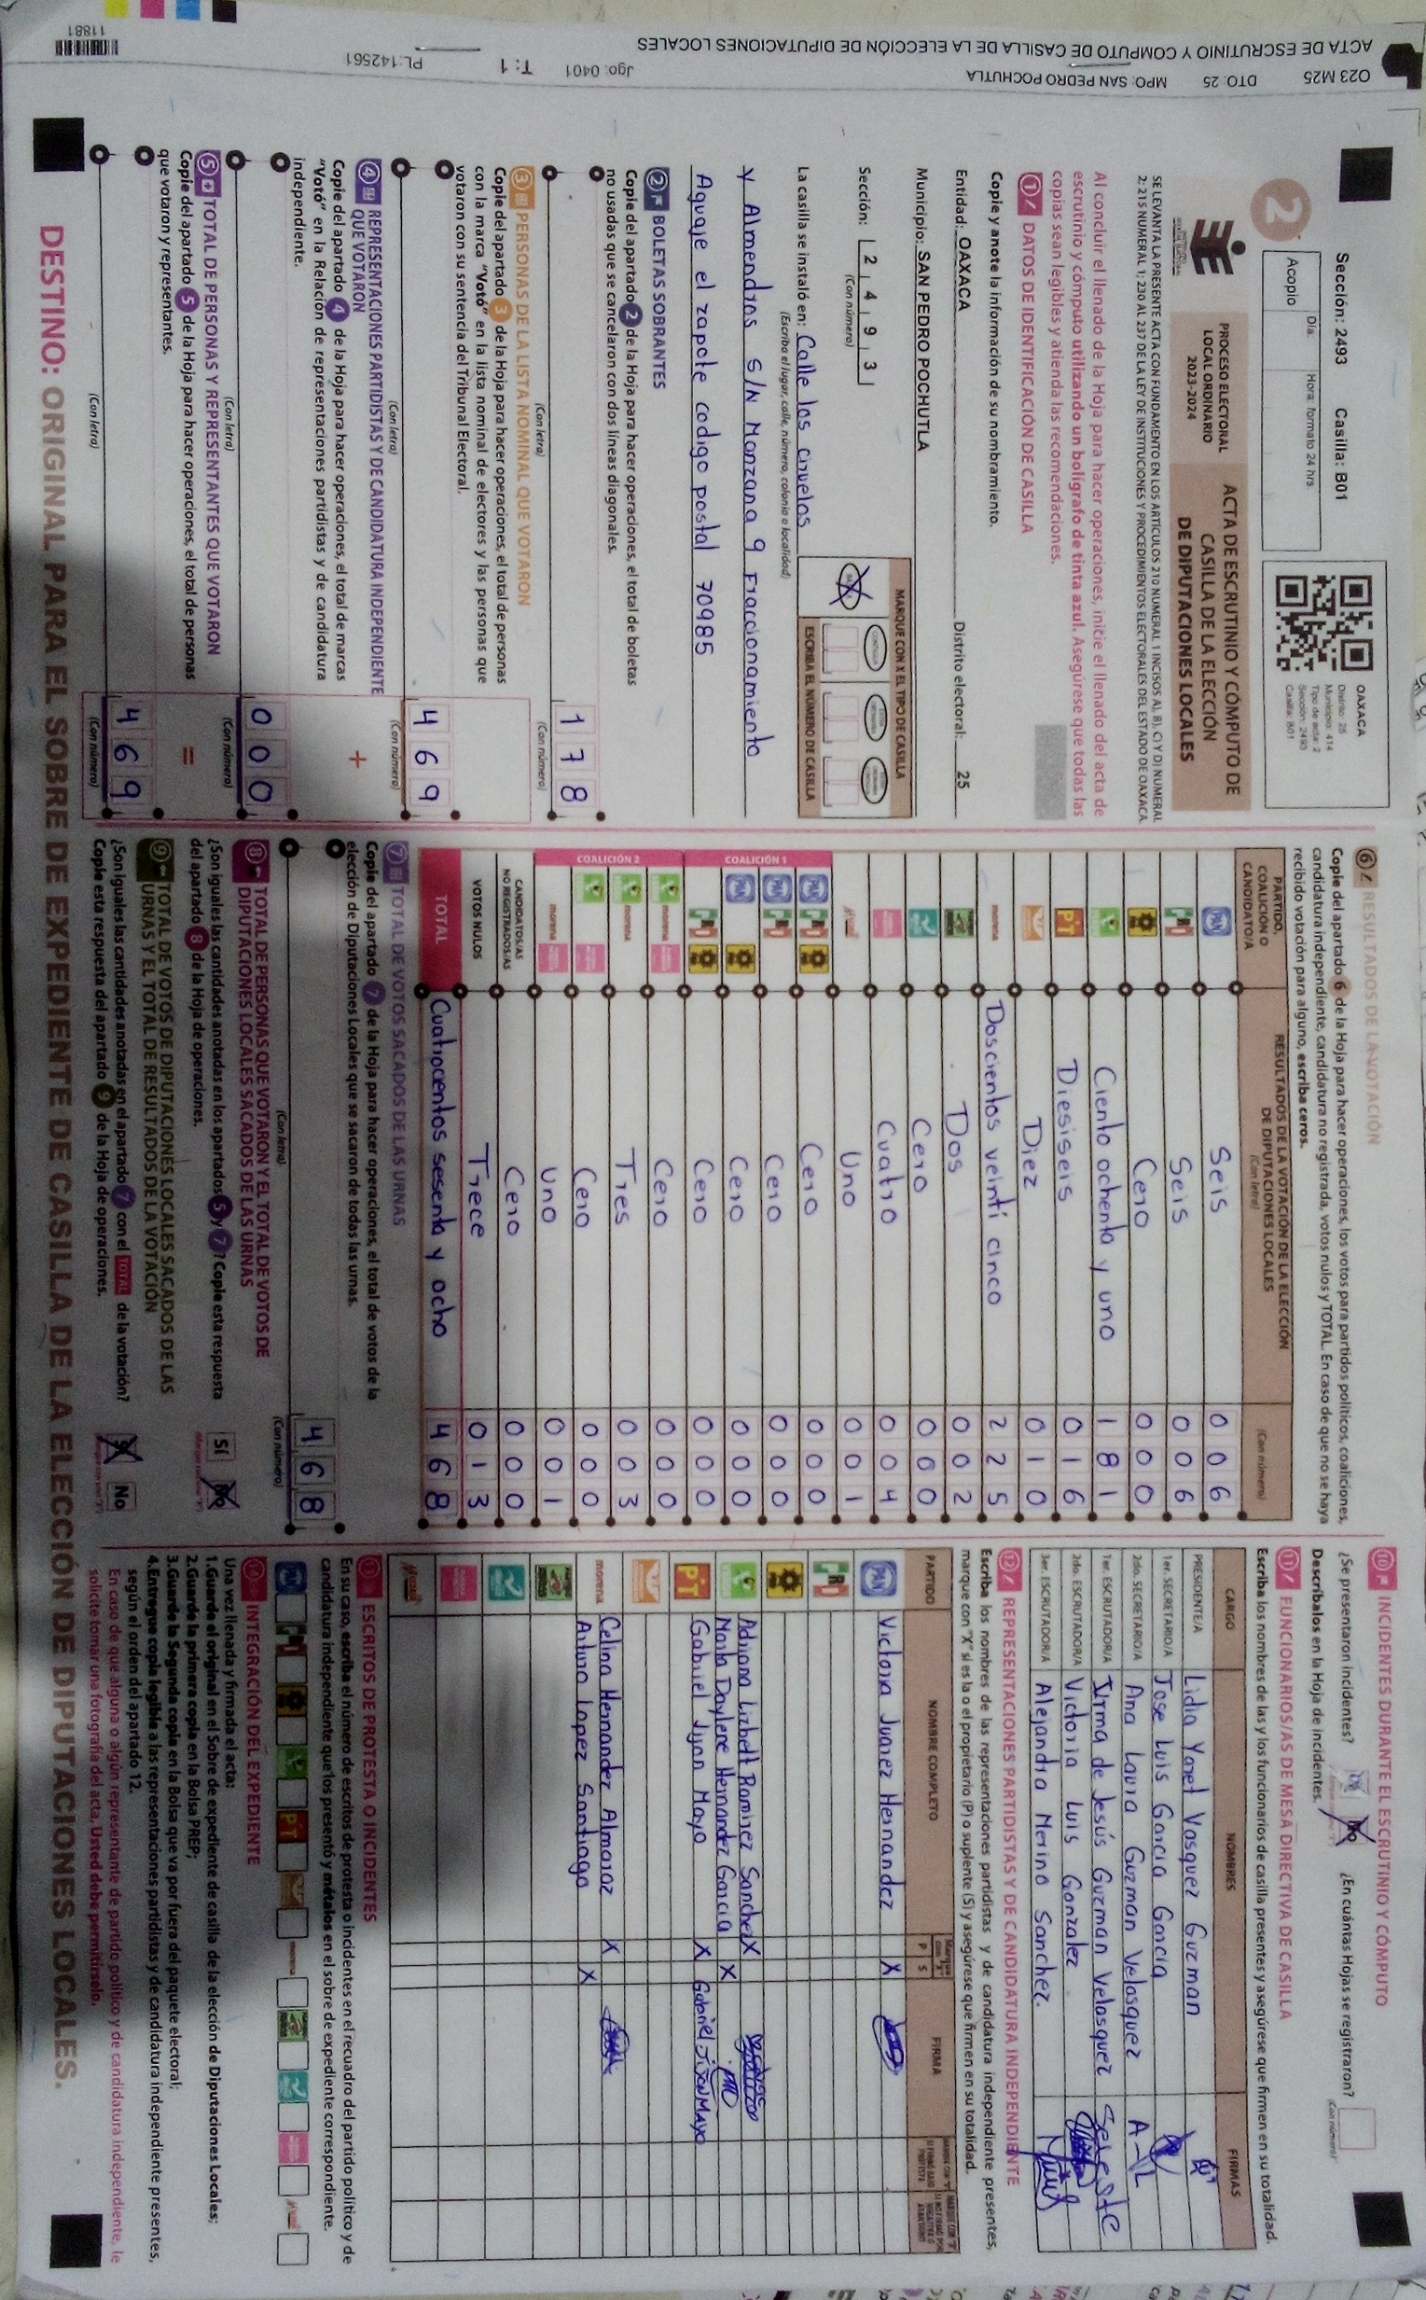 Sección: 2493 Casilla: B01
Acopio
Día:
Hora: formato 24 hrs.
OAXACA
Distrito: 25
Municipio: 414
Tipo de acta: 2
Sección: 2493
Casilla: B01
2
PROCESO ELECTORAL
LOCAL ORDINARIO
2023-2024
ACTA DE ESCRUTINIO Y CÓMPUTO DE
CASILLA DE LA ELECCIÓN
DE DIPUTACIONES LOCALES
SE LEVANTA LA PRESENTE ACTA CON FUNDAMENTO EN LOS ARTÍCULOS 210 NUMERAL 1 INCISOS A), B), C) Y D) NUMERAL
2; 215 NUMERAL 1; 230 AL 237 DE LA LEY DE INSTITUCIONES Y PROCEDIMIENTOS ELECTORALES DEL ESTADO DE OAXACA.
Al concluir el llenado de la Hoja para hacer operaciones, inicie el llenado del acta de
escrutinio y cómputo utilizando un bolígrafo de tinta azul. Asegúrese que todas las
copias sean legibles y atienda las recomendaciones.
1 DATOS DE IDENTIFICACIÓN DE CASILLA
Copie y anote la información de su nombramiento.
Entidad: OAXACA Distrito electoral: 25
Municipio: SAN PEDRO POCHUTLA
Sección: 2 4 9 3
(Con número)
MARQUE CON X EL TIPO DE CASILLA
ESCRIBA EL NÚMERO DE CASILLA
La casilla se instaló en: Calle los ciruelos
(Escriba el lugar, calle, número, colonia o localidad)
y Almendros S/N Manzana 9 Fraccionamiento
Aguaje el zapote codigo postal 70985
2 BOLETAS SOBRANTES
Copie del apartado 2 de la Hoja para hacer operaciones, el total de boletas
no usadas que se cancelaron con dos líneas diagonales.
1 7 8
(Con letra) (Con número)
3 PERSONAS DE LA LISTA NOMINAL QUE VOTARON
Copie del apartado 3 de la Hoja para hacer operaciones, el total de personas
con la marca "Votó" en la lista nominal de electores y las personas que
votaron con su sentencia del Tribunal Electoral.
4 6 9
(Con letra) (Con número)
4 REPRESENTACIONES PARTIDISTAS Y DE CANDIDATURA INDEPENDIENTE
QUE VOTARON
Copie del apartado 4 de la Hoja para hacer operaciones, el total de marcas
"Votó" en la Relación de representaciones partidistas y de candidatura
independiente.
+
0 0 0
(Con letra) (Con número)
5 TOTAL DE PERSONAS Y REPRESENTANTES QUE VOTARON
Copie del apartado 5 de la Hoja para hacer operaciones, el total de personas
que votaron y representantes.
=
4 6 9
(Con letra) (Con número)
6 RESULTADOS DE LA VOTACIÓN
Copie del apartado 6 de la Hoja para hacer operaciones, los votos para partidos políticos, coaliciones,
candidatura independiente, candidatura no registrada, votos nulos y TOTAL. En caso de que no se haya
recibido votación para alguno, escriba ceros.
PARTIDO,
COALICIÓN O
CANDIDATO/A
RESULTADOS DE LA VOTACIÓN DE LA ELECCIÓN
DE DIPUTACIONES LOCALES
(Con letra) (Con número)
PAN Seis 0 0 6
PRI Seis 0 0 6
Cero 0 0 0
Ciento ochenta y uno 1 8 1
PT Diesiseis 0 1 6
Diez 0 1 0
morena Doscientos veinti cinco 2 2 5
Dos 0 0 2
Cero 0 0 0
Cuatro 0 0 4
Uno 0 0 1
COALICIÓN 1
PAN PRI Cero 0 0 0
PAN PRI Cero 0 0 0
PAN Cero 0 0 0
PRI Cero 0 0 0
COALICIÓN 2
morena Cero 0 0 0
morena Tres 0 0 3
Cero 0 0 0
morena Uno 0 0 1
CANDIDATOS/AS
NO REGISTRADOS/AS Cero 0 0 0
VOTOS NULOS Trece 0 1 3
TOTAL Cuatrocientos sesenta y ocho 4 6 8
7 TOTAL DE VOTOS SACADOS DE LAS URNAS
Copie del apartado 7 de la Hoja para hacer operaciones, el total de votos de la
elección de Diputaciones Locales que se sacaron de todas las urnas.
4 6 8
(Con letra) (Con número)
8 TOTAL DE PERSONAS QUE VOTARON Y EL TOTAL DE VOTOS DE
DIPUTACIONES LOCALES SACADOS DE LAS URNAS
¿Son iguales las cantidades anotadas en los apartados 5 y 7? Copie esta respuesta
del apartado 8 de la Hoja de operaciones.
Sí No
9 TOTAL DE VOTOS DE DIPUTACIONES LOCALES SACADOS DE LAS
URNAS Y EL TOTAL DE RESULTADOS DE LA VOTACIÓN
¿Son iguales las cantidades anotadas en el apartado 7 con el TOTAL de la votación?
Copie esta respuesta del apartado 9 de la Hoja de operaciones.
Sí No
10 INCIDENTES DURANTE EL ESCRUTINIO Y CÓMPUTO
¿Se presentaron incidentes? Sí No ¿En cuántas Hojas se registraron?
(Con número)
Descríbalos en la Hoja de incidentes.
11 FUNCIONARIOS/AS DE MESA DIRECTIVA DE CASILLA
Escriba los nombres de las y los funcionarios de casilla presentes y asegúrese que firmen en su totalidad.
CARGO NOMBRES FIRMAS
PRESIDENTE/A Lidia Yanet Vasquez Guzman
1er. SECRETARIO/A Jose Luis Garcia Garcia
2do. SECRETARIO/A Ana Laura Guzman Velasquez
1er. ESCRUTADOR/A Irma de Jesús Guzman Velasquez
2do. ESCRUTADOR/A Victoria Luis Gonzalez
3er. ESCRUTADOR/A Alejandra Merino Sanchez.
12 REPRESENTACIONES PARTIDISTAS Y DE CANDIDATURA INDEPENDIENTE
Escriba los nombres de las representaciones partidistas y de candidatura independiente presentes,
marque con "X" si es la o el propietario (P) o suplente (S) y asegúrese que firmen en su totalidad.
PARTIDO NOMBRE COMPLETO P S FIRMA
PAN Victoria Juarez Hernandez X
PRI
Adriana Lizbett Ramirez Sanchez X
Narda Daylene Hernandez Garcia X
PT Gabriel Jijon Mayo X Gabriel Jijon Mayo
morena Celina Hernandez Almaraz X
Arturo Lopez Santiago X
13 ESCRITOS DE PROTESTA O INCIDENTES
En su caso, escriba el número de escritos de protesta o incidentes en el recuadro del partido político y de
candidatura independiente que los presentó y métalos en el sobre de expediente correspondiente.
14 INTEGRACIÓN DEL EXPEDIENTE
Una vez llenada y firmada el acta:
1.Guarde el original en el Sobre de expediente de casilla de la elección de Diputaciones Locales;
2.Guarde la primera copia en la Bolsa PREP;
3.Guarde la Segunda copia en la Bolsa que va por fuera del paquete electoral;
4.Entregue copia legible a las representaciones partidistas y de candidatura independiente presentes,
según el orden del apartado 12.
En caso de que alguna o algún representante de partido político y de candidatura independiente, le
solicite tomar una fotografía del acta, Usted debe permitírselo.
DESTINO: ORIGINAL PARA EL SOBRE DE EXPEDIENTE DE CASILLA DE LA ELECCIÓN DE DIPUTACIONES LOCALES.
O23 M25 DTO: 25 MPO: SAN PEDRO POCHUTLA Jgo: 0401 T: 1 PL:142561
ACTA DE ESCRUTINIO Y COMPUTO DE CASILLA DE LA ELECCIÓN DE DIPUTACIONES LOCALES
11881